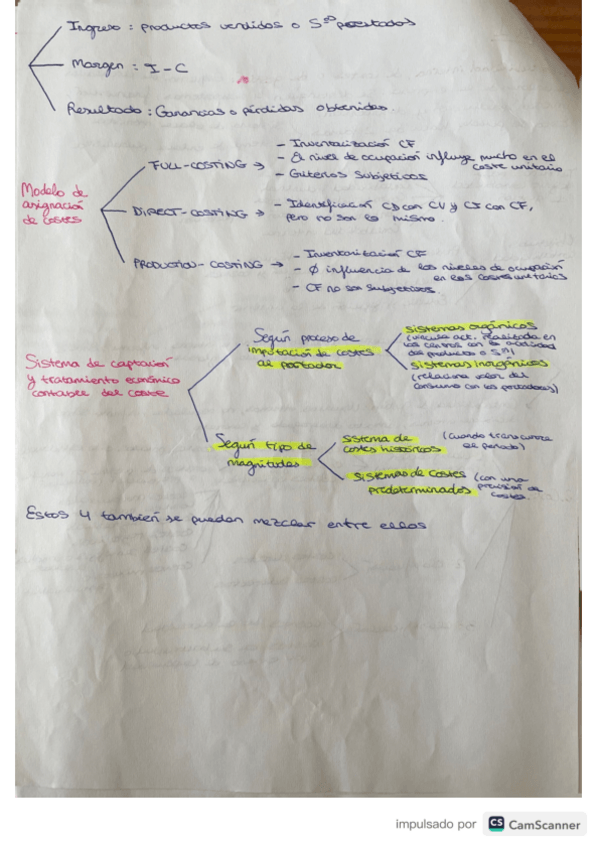 Ingreso : productos vendidos o Sºs prestados
Margen : I - C
Resultado : Ganancias o pérdidas obtenidas.
Modelo de
asignación
de costes
FULL-COSTING →
- Inventarización CF
- El nivel de ocupación influye mucho en el
coste unitario
- Criterios Subjetivos
DIRECT-COSTING →
- Identificación CD con CV y CI con CF,
pero no son lo mismo.
PRODUCTION-COSTING →
- Inventarización CF
- Ø influencia de los niveles de ocupación
en los costes unitarios
- CF no son Subjetivos.
Sistema de captación
y tratamiento económico
contable del coste
Según proceso de
imputación de costes
al portador
sistemas orgánicos
(vincula act. realizada en
los centros con la actividad
dos productos o
sistemas inorgánicos
(relaciona valor del
consumo con los portadores)
Según tipo de
magnitudes
sistema de
costes históricos
(cuando transcurre
el periodo)
sistemas de costes
predeterminados
(con una
previsión de
costes.
Estos 4 también se pueden mezclar entre ellos
impulsado por CS CamScanner